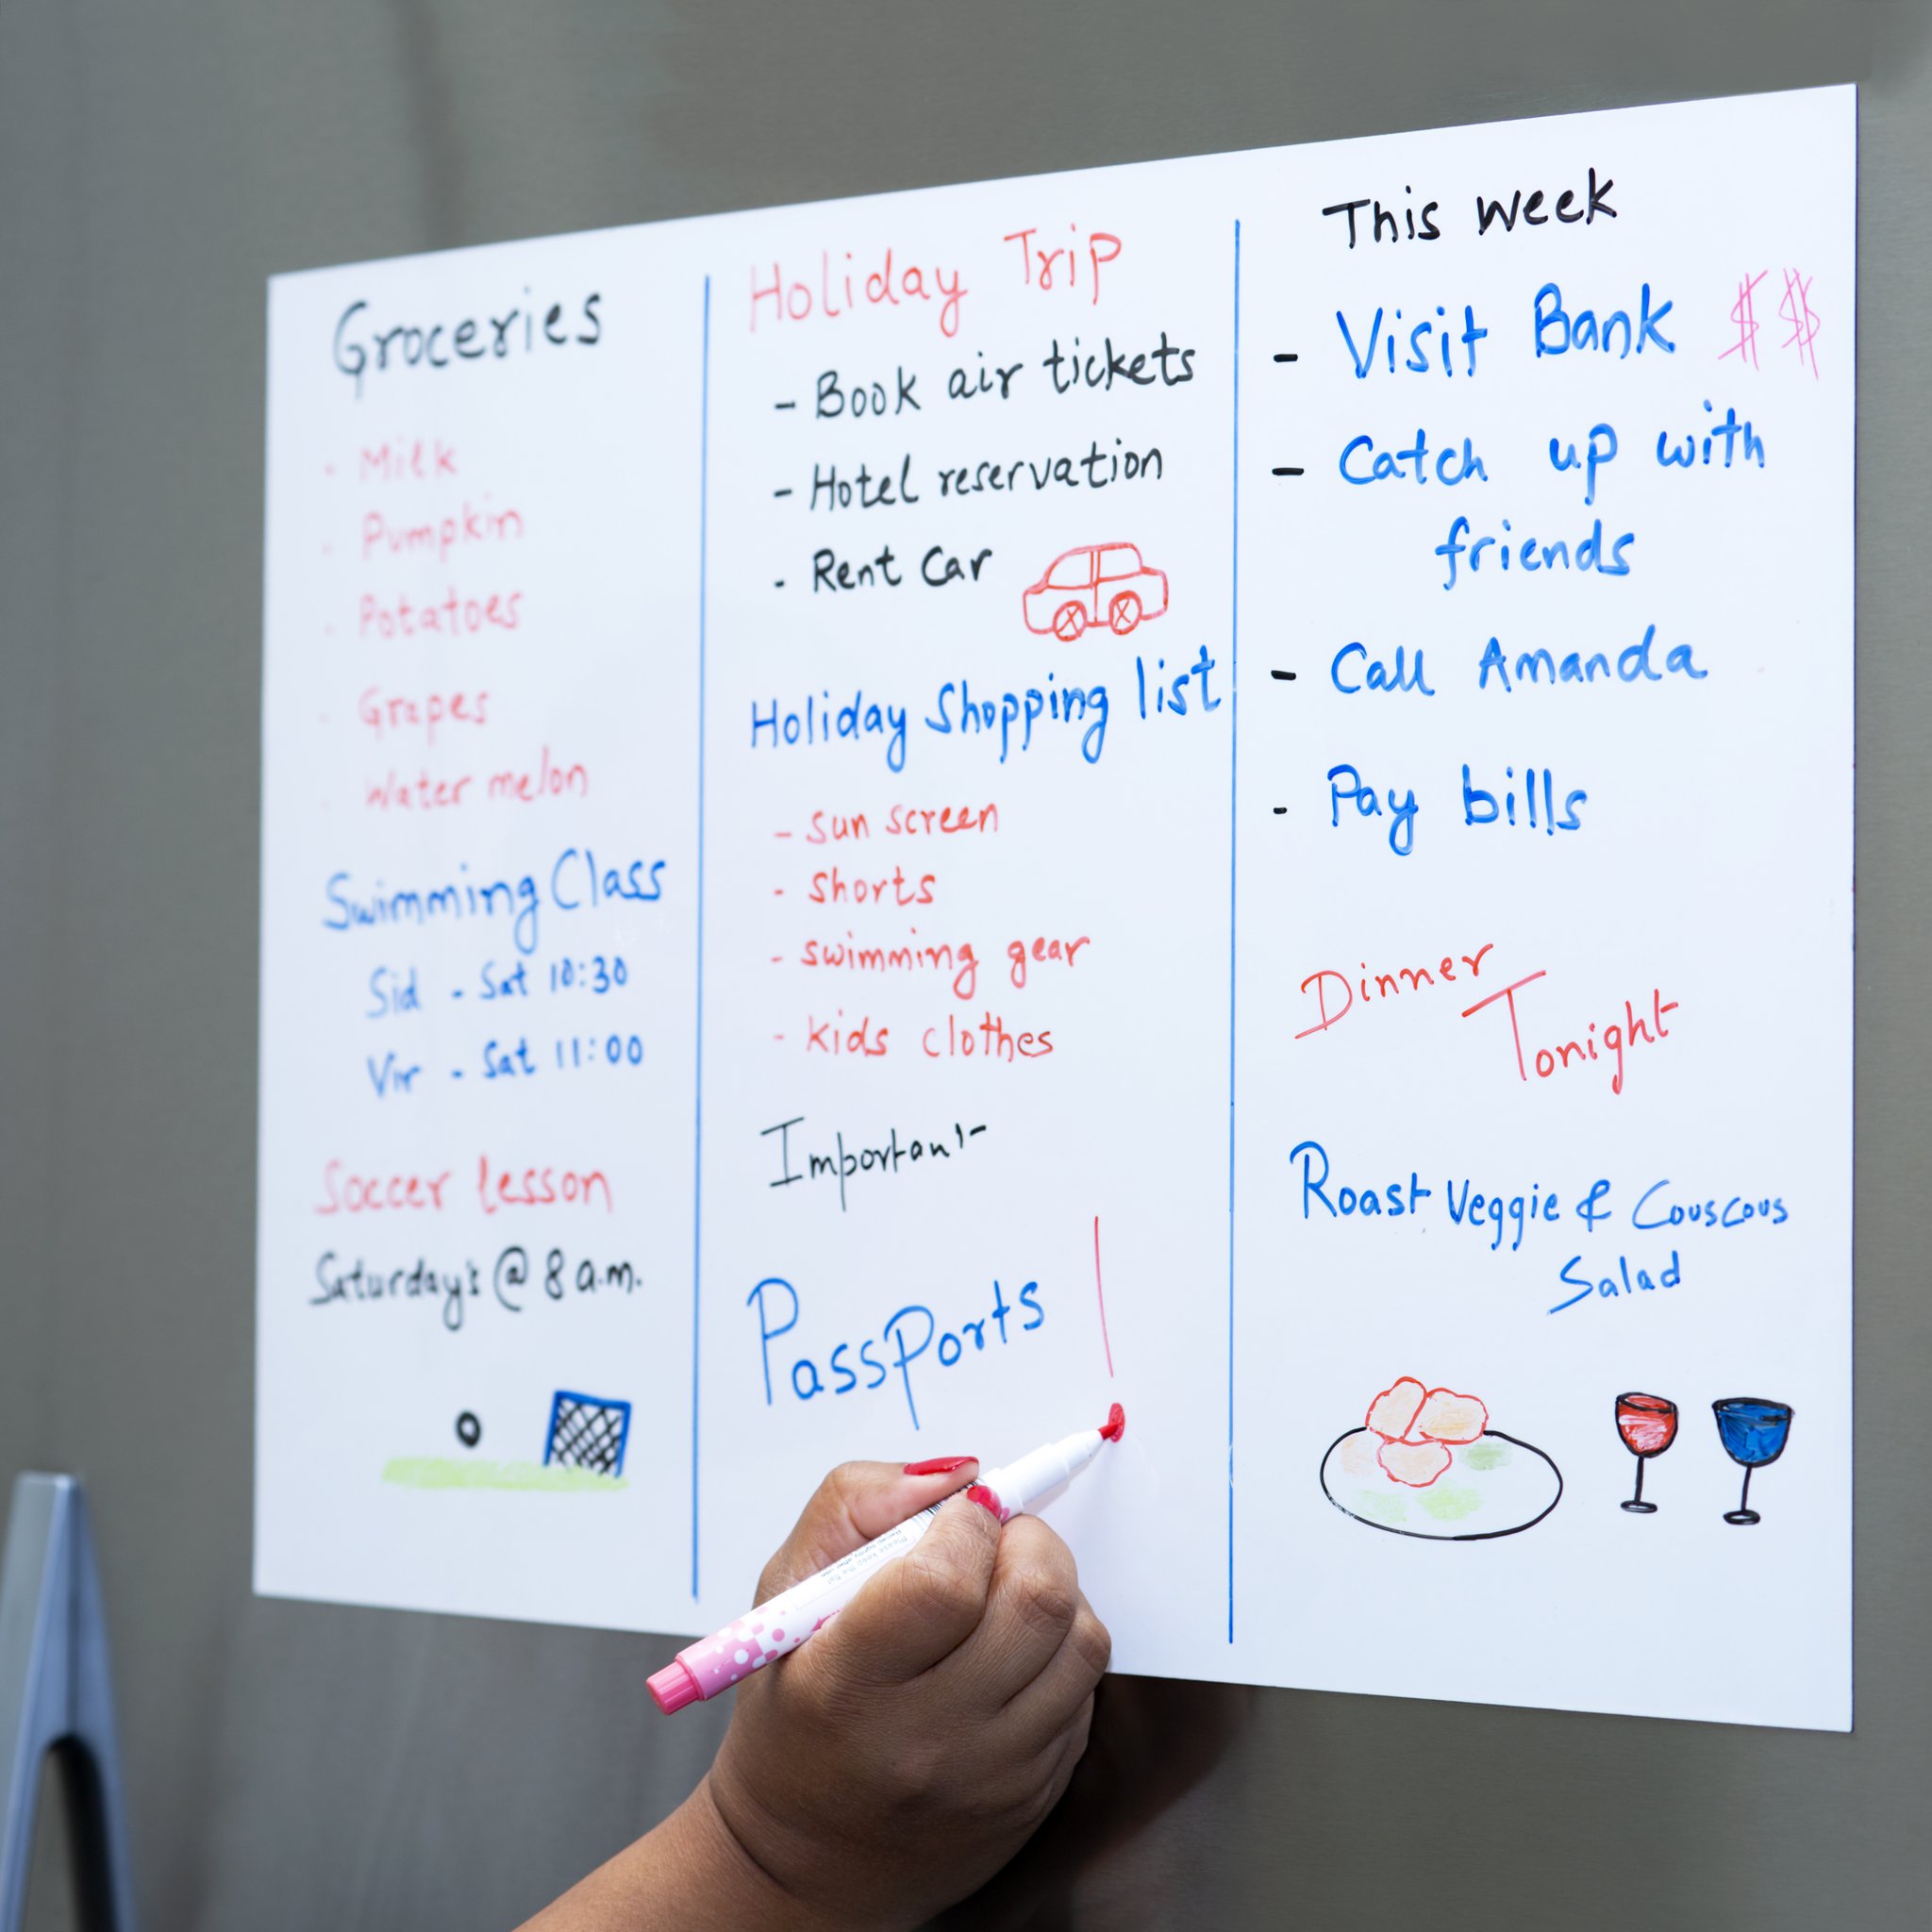 Groceries
- Milk
- Pumpkin
- Potatoes
- Grapes
- Water melon
Swimming Class
Sid - Sat 10:30
Vir - Sat 11:00
Soccer lesson
Saturday's @ 8 a.m.
Holiday Trip
- Book air tickets
- Hotel reservation
- Rent Car
Holiday Shopping list
- Sun screen
- Shorts
- swimming gear
- kids clothes
Important
Passports !
This week
- Visit Bank $$
- Catch up with
friends
- Call Amanda
- Pay bills
Dinner
Tonight
Roast Veggie & Couscous
Salad